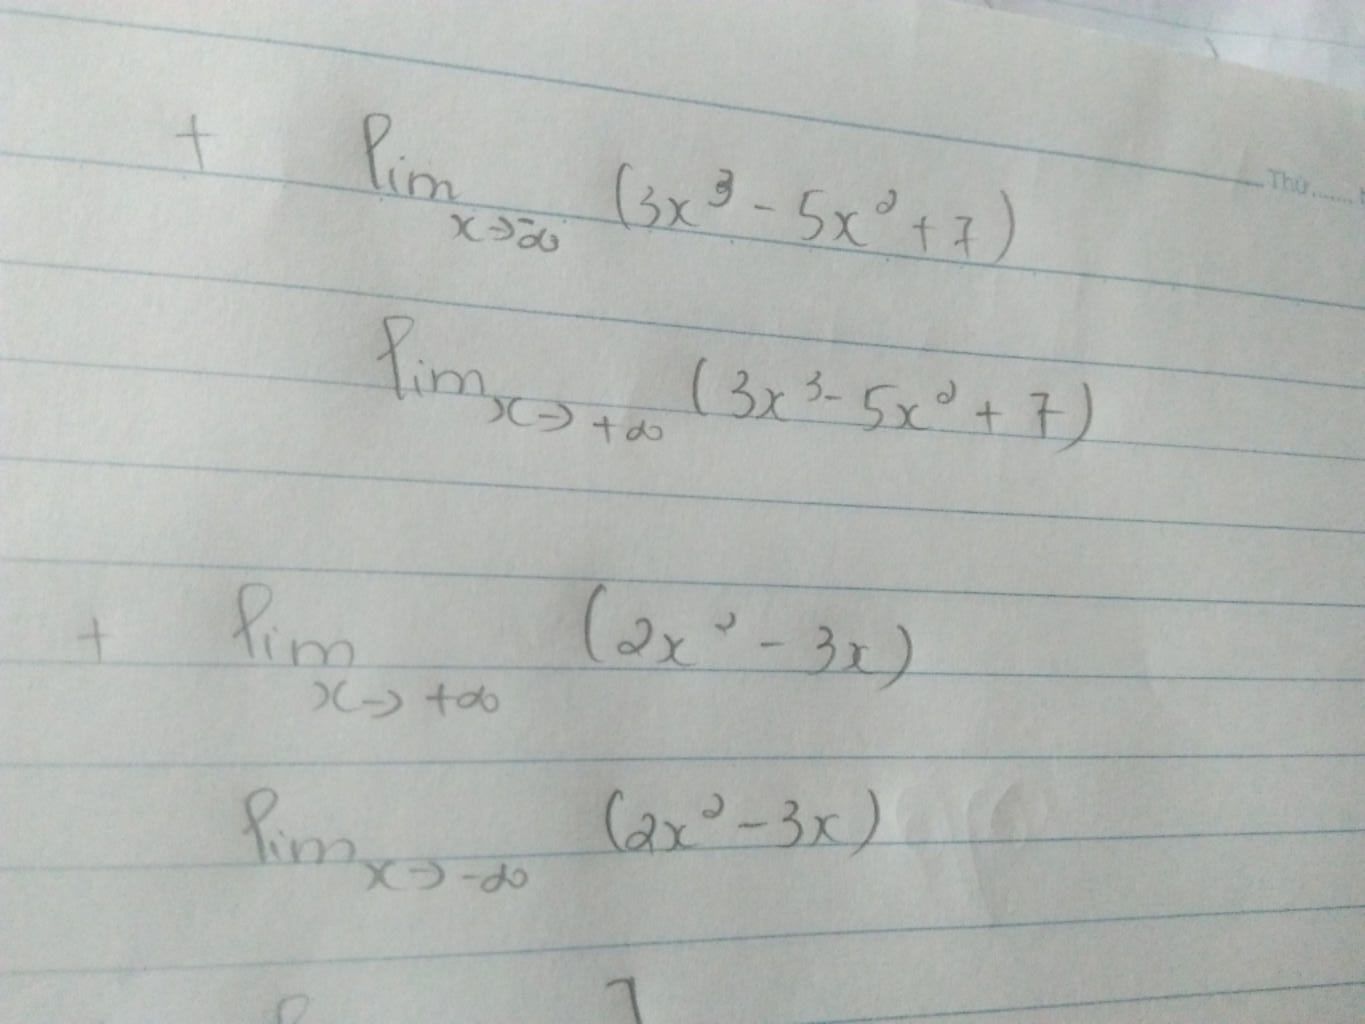 Thứ......
+ lim x→-∞ (3x³ - 5x² + 7)
lim x→+∞ (3x³ - 5x² + 7)
+ lim x→+∞ (2x² - 3x)
lim x→-∞ (2x² - 3x)